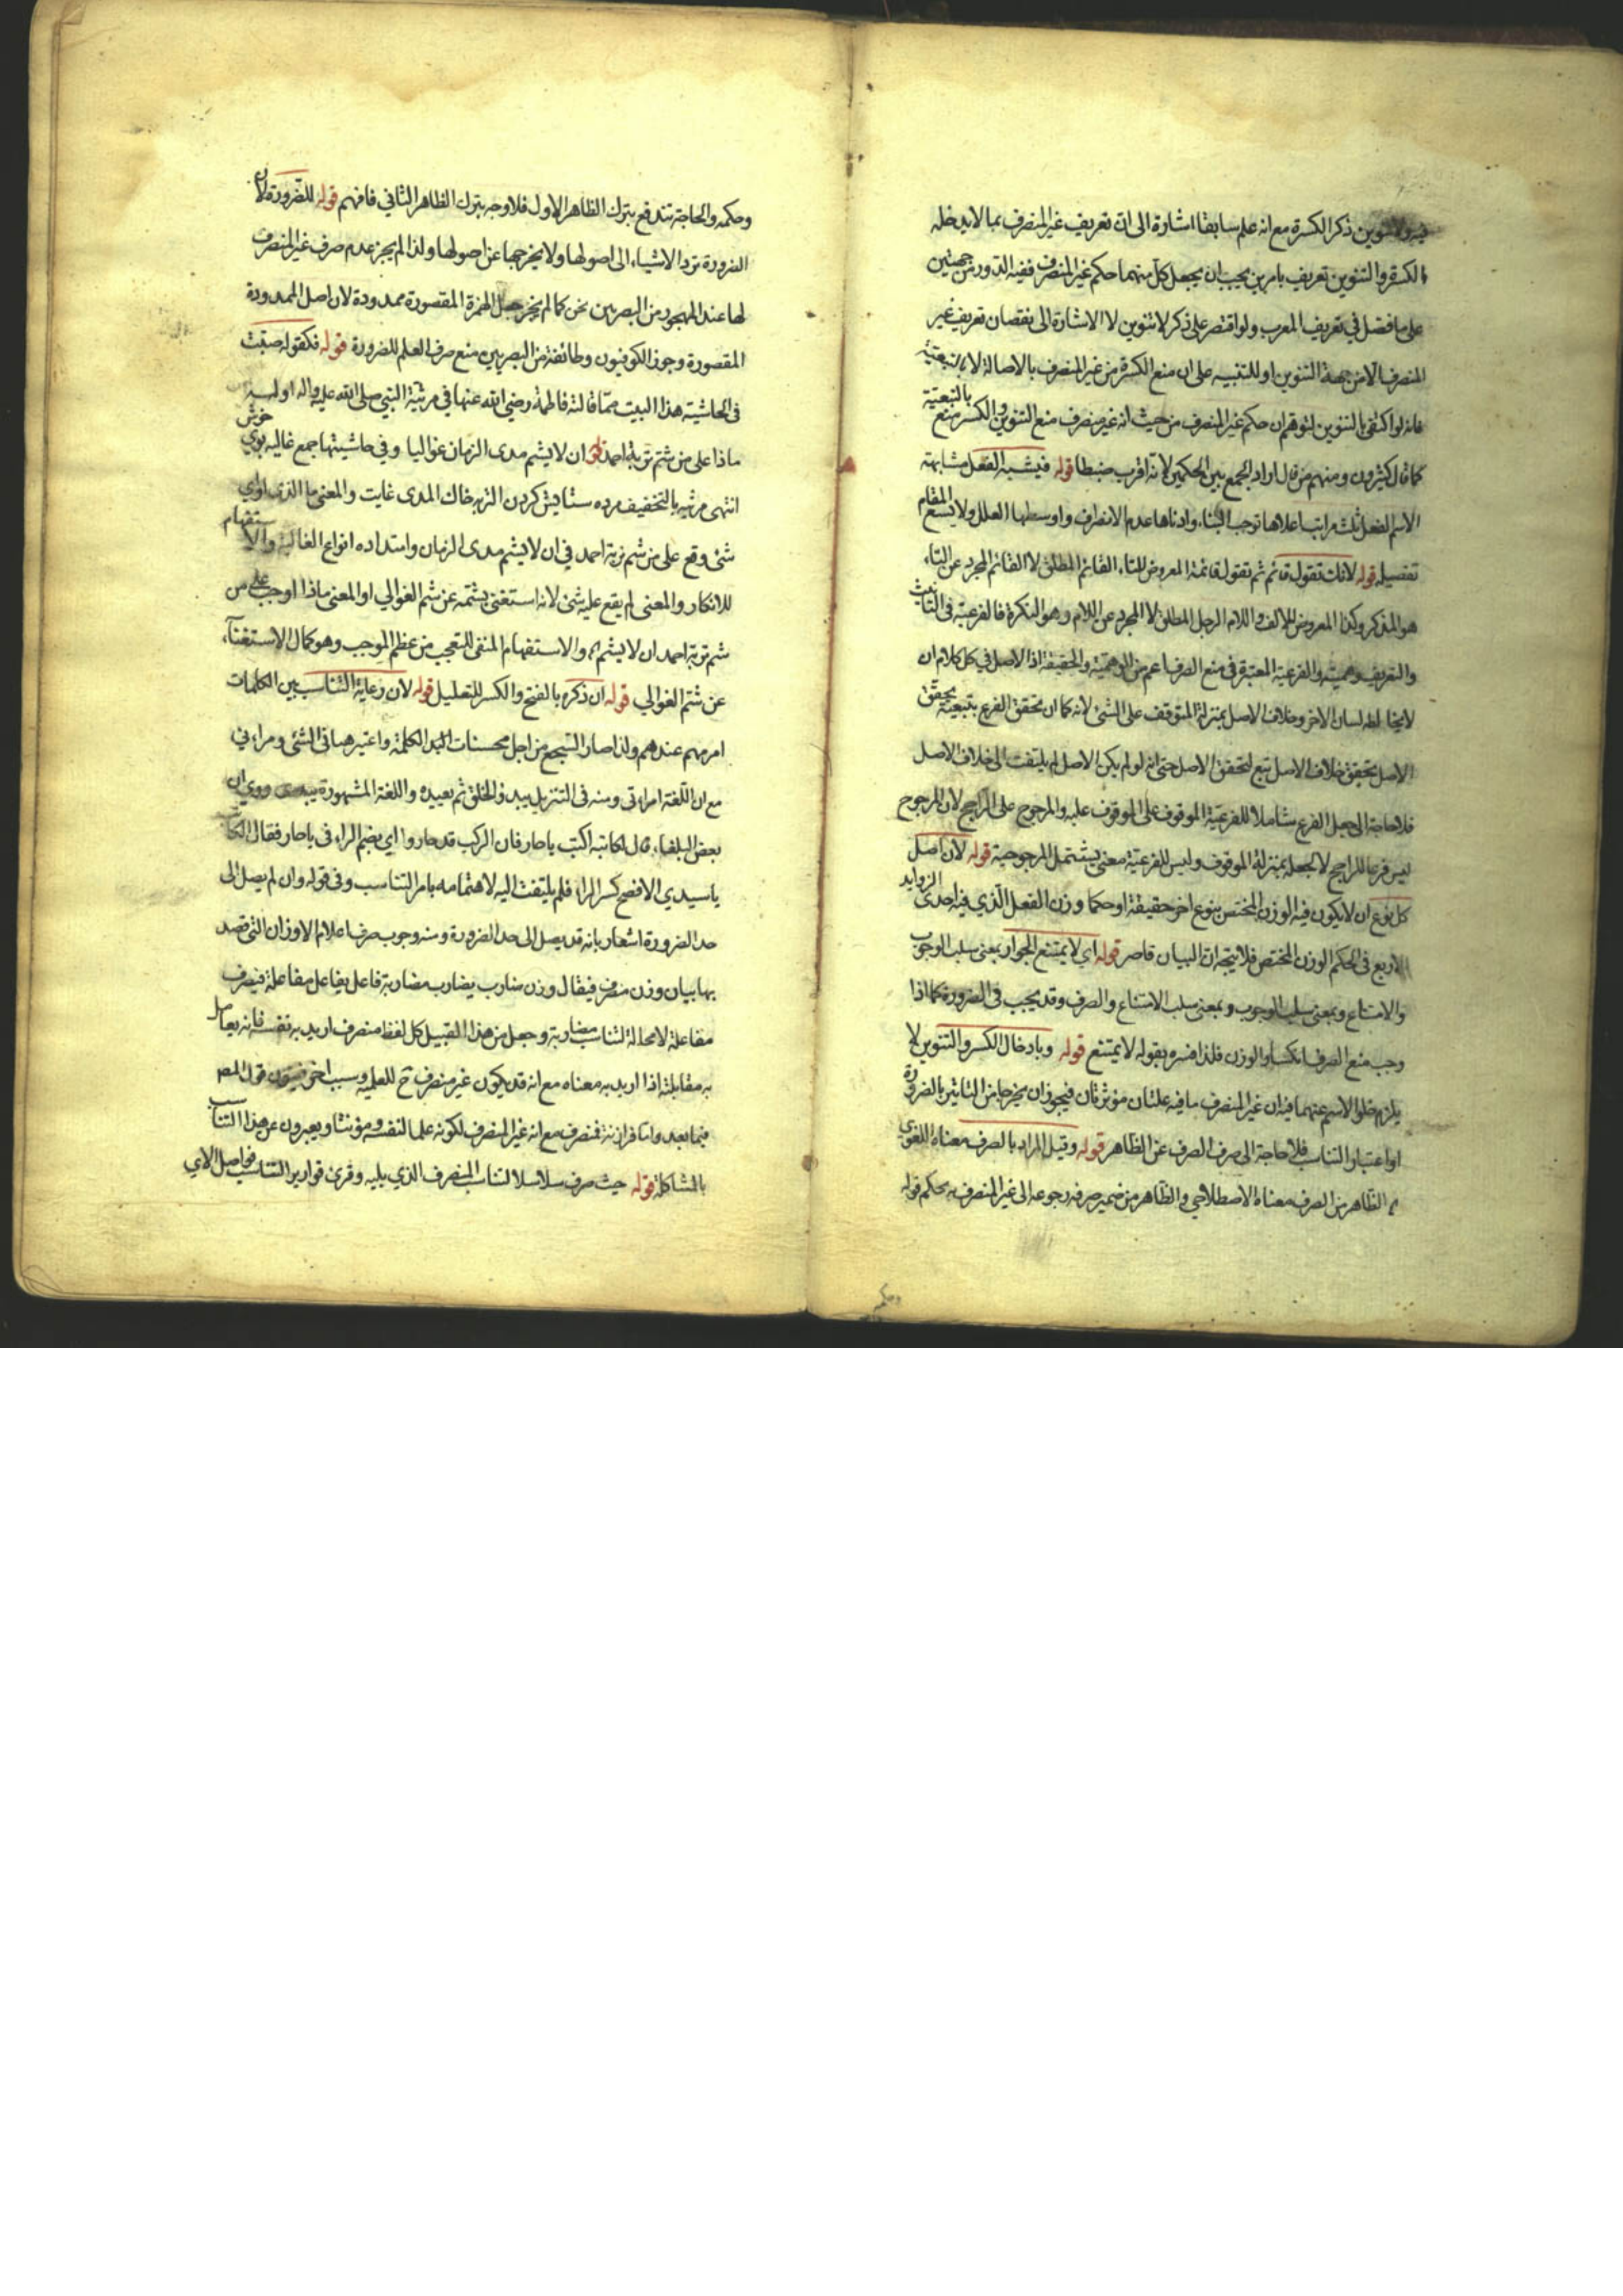 فيه ولا تنوين ذكر الكسرة مع انه علم سابقا اشارة الى ان تعريف غير المنصرف بما لا يدخله
الكسرة والتنوين تعريف بامرين يجب ان يجعل كل منهما حكم غير المنصرف ففيه الدور من جهتين
على ما فصل في تعريف المعرب ولو اقتصر على ذكر لا تنوين لا الاشارة الى نقصان تعريف غير
المنصرف الا من جهة التنوين او للتنبيه على ان منع الكسرة من غير المنصرف بالاصالة لا بالتبعية
فانه لو اكتفى بالتنوين لتوهم ان حكم غير المنصرف من حيث انه غير منصرف منع التنوين والكسر منع بالتبعية
كما قال كثيرون ومنهم من قال اراد الجمع بين الحكمين لانه اقرب ضبطا قوله فيشبه الفعل مشابهة
الاسم الفعل ثلث مراتب اعلاها توجب البناء وادناها عدم الانصراف واوسطها العلل ولا يسع المقام
تفصيله قوله لانك تقول قائم ثم تقول قائمة المعروض للتاء القائم المطلق لا القائم المجرد عن التاء
هو المذكر وكذا المعروض للالف واللام الرجل المطلق لا المجرد عن اللام وهو النكرة فالفرعية في التانيث
والتعريف وهمية والفرعية المعتبرة في منع الصرف اعم من الوهمية والحقيقة اذ الاصل في كل كلام ان
لا يخالطه لسان الاخر وخلاف الاصل بمنزلة المتوقف على الشئ لانه كما ان تحقق الفرع بتبعية تحقق
الاصل تحقق خلاف الاصل تبع لتحقق الاصل حتى انه لو لم يكن الاصل لم يلتفت الى خلاف الاصل
فلا حاجة الى جعل الفرع شاملا للفرعية الموقوف على الموقوف عليه والمرجوح على الراجح لان المرجوح
ليس فرعا للراجح لا لجعله بمنزلة الموقوف وليس للفرعية معنى يشتمل المرجوحية قوله لان اصل
كل نوع ان لا يكون فيه الوزن المختص بنوع اخر حقيقة او حكما وزن الفعل الذي فيه احدى الزوايد
الاربع في الحكم الوزن المختص فلا يتجه ان البيان قاصر قوله اي لا يمتنع الجواز بمعنى سلب الوجوب
والامتناع وبمعنى سلب الوجوب وبمعنى سلب الامتناع والصرف وقد يجب في الضرورة كما اذا
وجب منع الصرف انكسار الوزن فلذا فسره بقوله لا يمتنع قوله وبادخال الكسر والتنوين لا
يلزم خلو الاسم عنهما فيه ان غير المنصرف ما فيه علتان مؤثرتان فيجوز ان يخرجا من التاثير بالضرورة
او اعتبار التناسب فلا حاجة الى صرف الصرف عن الظاهر قوله وقيل المراد بالصرف معناه اللغوي
الظاهر من الصرف معناه الاصطلاحي والظاهر من ضمير صرفه رجوعه الى غير المنصرف بحكم قوله
وحكمه
وحكمه والحاجة تندفع بترك الظاهر الاول فلا وجه بترك الظاهر الثاني فافهم قوله للضرورة لان
الضرورة ترد الاشياء الى اصولها ولا يخرجها عن اصولها ولذا لم يجز عدم صرف غير المنصرف
لها عند المهجور من البصريين نحن كما لم يجز جعل الهمزة المقصورة ممدودة لان اصل الممدودة
المقصورة وجوز الكوفيون وطائفة من البصريين منع صرف العلم للضرورة قوله فكقوله صبت
في الحاشية هذا البيت مما قالته فاطمة رضي الله عنها في مرثية النبي صلى الله عليه واله اوله
ماذا على من شم تربة احمد ان لا يشم مدى الزمان غواليا وفي حاشيتها جمع غاليه بوي خوش
انتهى مرثيه بالتخفيف مرده ستايش كردن التربه خاك المدى غايت والمعنى ما الذي اي
شئ وقع على من شم تربة احمد في ان لا يشم مدى الزمان وامتداده انواع الغالية والاستفهام
للانكار والمعنى لم يقع عليه شئ لانه استغنى بشمه عن شم الغوالي او المعنى ماذا اوجب على من
شم تربة احمد ان لا يشم والاستفهام المنفى للتعجب من عظم الموجب وهو كمال الاستغناء
عن شم الغوالي قوله ان ذكره بالفتح والكسر للتعليل قوله لان رعاية التناسب بين الكلمات
امر مهم عندهم ولذا صار السجع من اجل محسنات الكلمة واعتبر هنانى الشئ ومرانى
مع ان اللغة امرانى ومنه في التنزيل يبدئ الخلق ثم يعيده واللغة المشهورة يبدء وروي ان
بعض البلغاء قال لكاتبه اكتب ياحار فان الركب قد حاروا اي بضم الراء في ياحار فقال الكاتب
يا سيدي الافصح كسر الراء فلم يلتفت اليه لاهتمامه بامر التناسب وفي قوله وان لم يصل الى
حد الضرورة اشعار بانه قد يصل الى حد الضرورة ومنه وجوب صرف اعلام الاوزان التي قصد
بها بيان وزن منصرف فيقال وزن ضارب يضارب مضاربة فاعل يفاعل مفاعلة فيصرف
مفاعلة لا محالة لتناسب مضاربة وجعل من هذا القبيل كل لفظ منصرف اريد به نفسه فانه يعامل
به مقابلته اذا اريد به معناه مع انه قد يكون غير منصرف ح للعلمية وسبب اخر قول المص
فيما بعد واما فرازنة فمنصرف مع انه غير المنصرف لكونه علما لنفسه ومؤنثا ويعبرون عن هذا التناسب
بالمشاكلة قوله حيث صرف سلاسلا لتناسب المنصرف الذي يليه وقرئ قواريرا لتناسب فواصل الاي